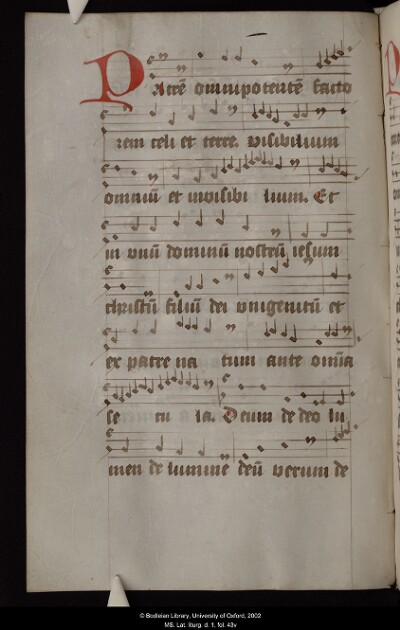 Patrē om̄ipotentē facto
rem celi et terre. visibilium
omniū et invisibi lium. Et
in unū dominū nostrū iesum
christū filiū dei unigenitū et
ex patre na tum ante om̄ia
se cu la. Deum de deo lu
men de lumine deū verum de
© Bodleian Library, University of Oxford, 2002
MS. Lat. liturg. d. 1, fol. 43v